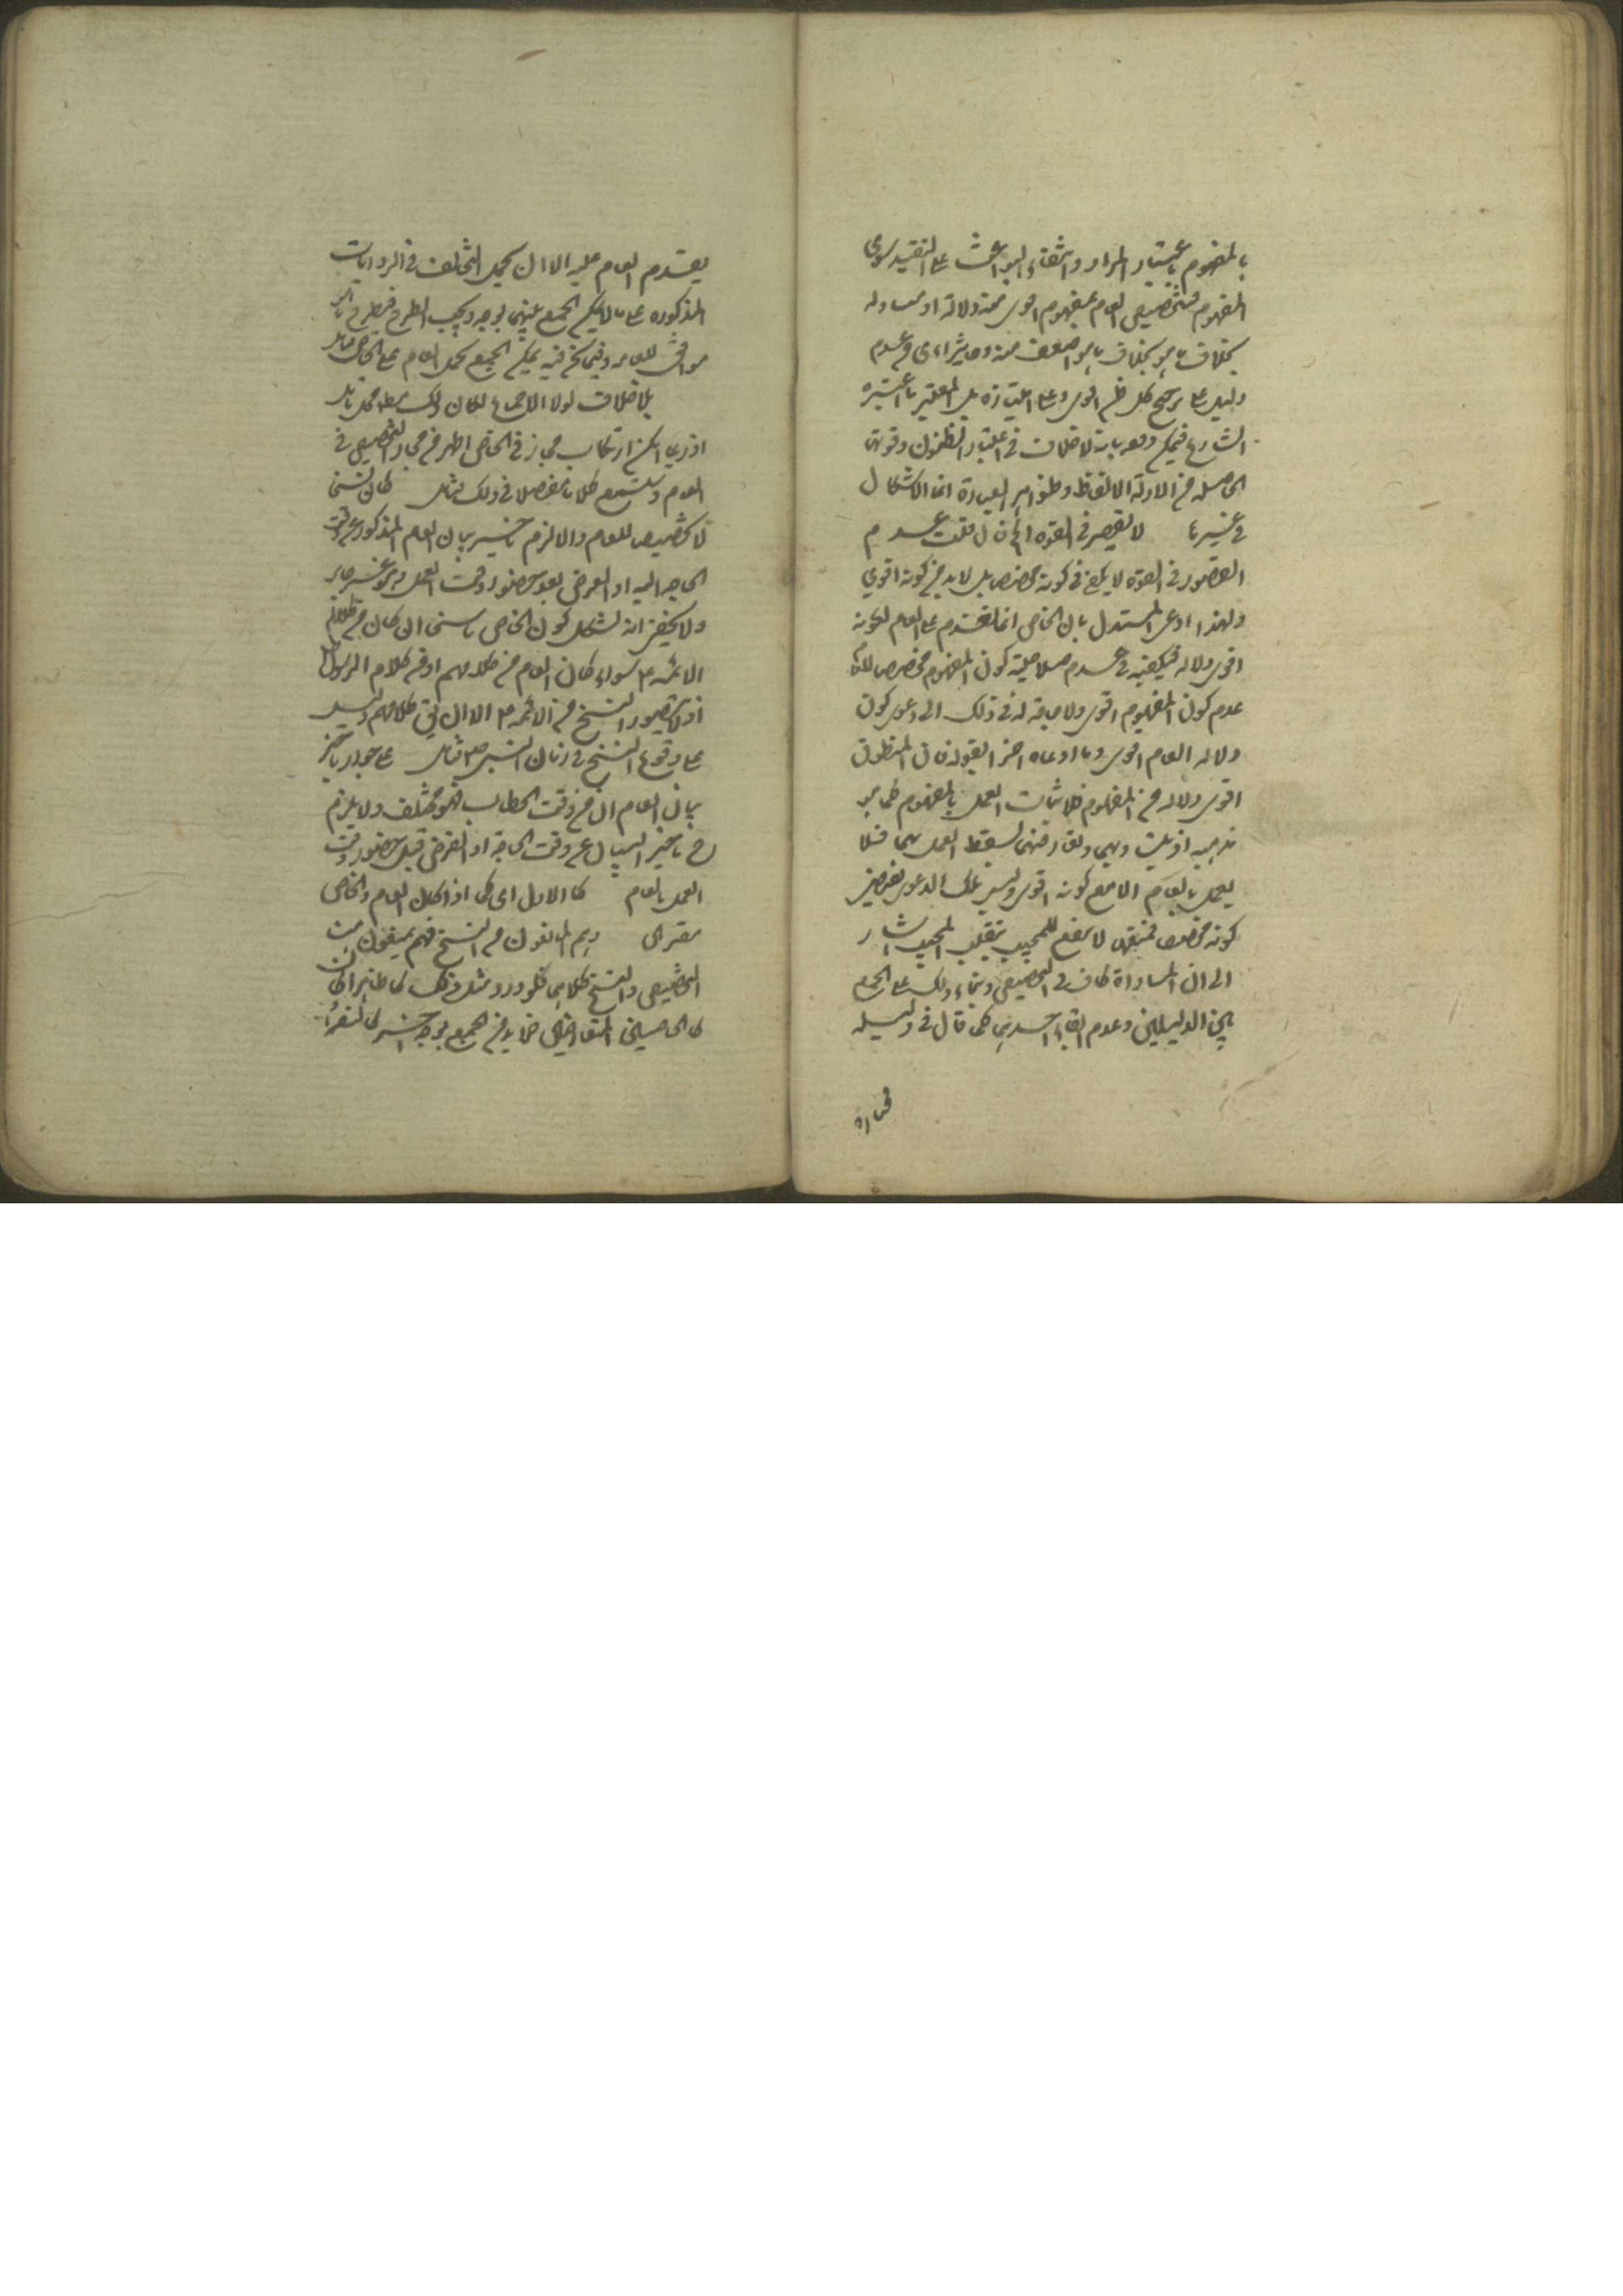 بالمفهوم باعتبار المراد وانتفاء البواعث على التقييد سوى
المفهوم فتخصيص العام بمفهوم اقوى منه دلالة او مساو له
بخلاف ما هو بخلاف ما هو اضعف منه وما يتراءى من عدم
دليل على ترجيح كل ظن اقوى وعلى اعتباره بل المعتبر ما اعتبره
الشارع فيمكن دفعه بانه لا خلاف في اعتبار الظنون وقوتها
الحاصلة من الادلة الالفاظ وظواهر العبارة انما الاشكال
في غيرها لا يقصر في القوة الخ فان قلت عدم
القصور في القوة لا يكفي في كونه مخصصا بل لا بد من كونه اقوى
ولهذا ادعى المستدل بان الخاص انما يقدم على العام لكونه
اقوى دلالة فيكفيه في عدم صلاحية كون المفهوم مخصصا للعام
عدم كون المفهوم اقوى ولا حاجة له في ذلك الى دعوى كون
دلالة العام اقوى وما ادعاه اخيرا بقوله فان المنطوق
اقوى دلالة من المفهوم فلاثبات العمل بالمفهوم كما هو
مذهبه اذ يثبت وبهما وتعارضهما يسقط العمل بهما فلا
يعمل بالعام الا مع كونه اقوى وليس تلك الدعوى بغرض
كونه مخصصا فمنعها لا ينفع للمجيب بتغليب المجيب اشار
الى ان المساواة كاف في التخصيص وبناء ذلك على الجمع
بين الدليلين وعدم الغاء احدهما كما قال في دليله
يقدم العام عليه الا ان يحمل التخالف في الروايات
المذكورة على ما لا يمكن الجمع بينهما بوجه ويجب الطرح فيطرح ما هو
موافق للعامة وفيما نحن فيه يمكن الجمع بحمل العام على الخاص
بلا خلاف لولا الاجماع لكان ذلك محل تامل
اذ ربما يمكن ارتكاب مجاز في الخاص اظهر من مجاز التخصيص في
العام وستسمع كلاما مفصلا في ذلك فتامل كان نسخا
لا تخصيصا للعام والا لزم تاخير بيان العام المذكور عن وقت
الحاجة اليه اذ الفرض بعد حضور وقت العمل وهو غير جايز
ولا يخفى انه يشكل كون الخاص ناسخا ان كان من كلام
الائمة ع سواء كان العام من كلامهم او من كلام الرسول
اذ لا يتصور النسخ من الائمة ع الا ان يقال كلامهم دليل
على وقوع النسخ في زمان النبي ص فتامل على جواز تاخير
بيان العام الخ من وقت الخطاب فهو مختلف ولا يلزم
ح تاخير البيان عن وقت الحاجة اذ الفرض قبل حضور وقت
العمل بالعام كالاول اى كما اذا كان العام والخاص
مقترنين وهم المانعون من النسخ فهم يمنعون من
التخصيص والنسخ كلاهما فلو ورد مثل ذلك
كالخاصين المتعارضين فلا بد من الجمع بوجه اخر